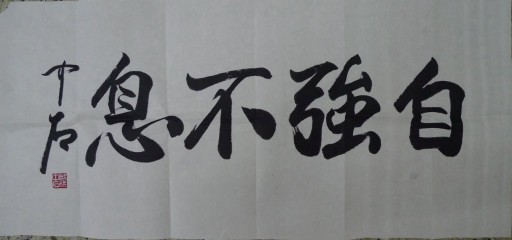 自強不息
中石